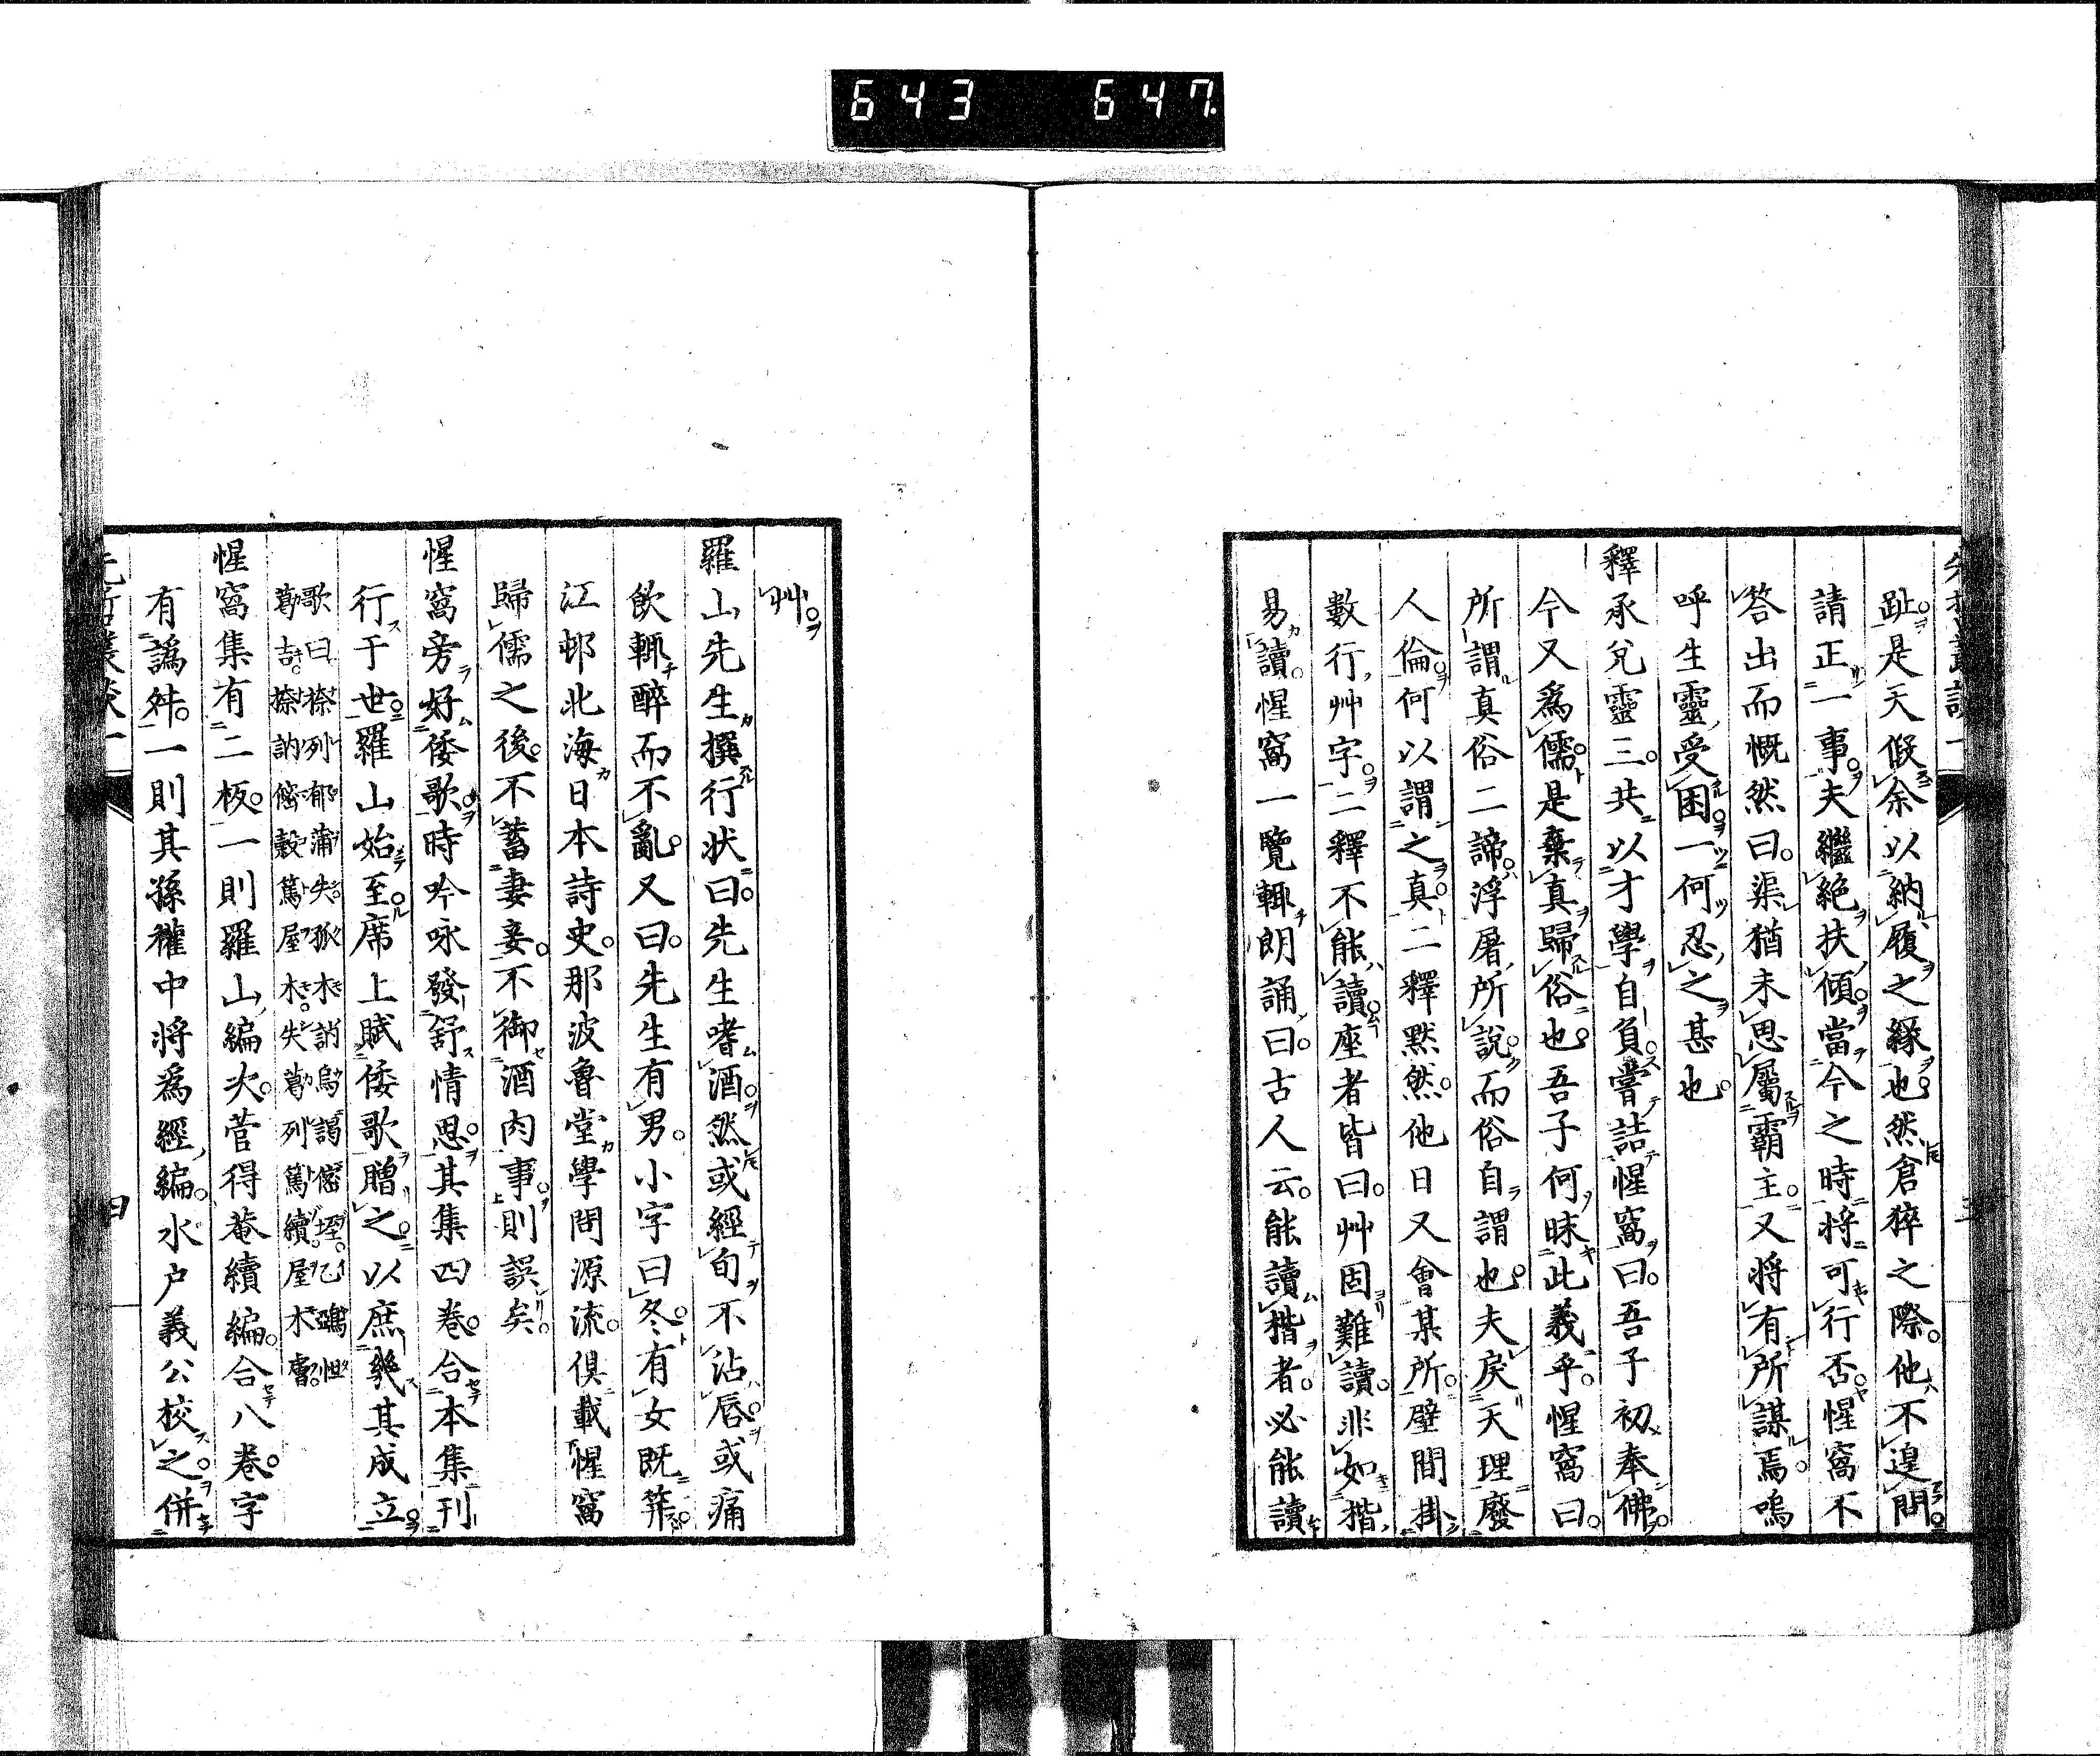 643 647
趾是天假余以納履之緣也然倉猝之際他不遑問
請正一事夫繼絕扶傾當今之時將可行否惺窩不
答出而慨然曰渠猶未思屬霸主又將有所謀焉嗚
呼生靈受困一何忍之甚也
釋承兌靈三共以才學自負嘗詰惺窩曰吾子初奉佛
今又為儒是棄真歸俗也吾子何昧此義乎惺窩曰
所謂真俗二諦浮屠所說而俗自謂也夫戾天理廢
人倫何以謂之真二釋默然他日又會某所壁間掛
數行艸字二釋不能讀座者皆曰艸固難讀非如楷
易讀惺窩一覽輒朗誦曰古人云能讀楷者必能讀
艸
羅山先生撰行狀曰先生嗜酒然或經旬不沾唇或痛
飲輒醉而不亂又曰先生有男小字曰冬有女既筓
江邨北海日本詩史那波魯堂學問源流俱載惺窩
歸儒之後不蓄妻妾不御酒肉事則誤矣
惺窩旁好倭歌時吟咏發舒情思其集四卷合本集刊
行于世羅山始至席上賦倭歌贈之以庶幾其成立
歌曰捺列郁蒲失孤木訥烏謁
葛吉捺訥
屋木失葛列篤續屋木
惺窩集有二板一則羅山編次菅得菴續編合八卷字
有譌舛一則其孫
中將為經編水戶義公校之併